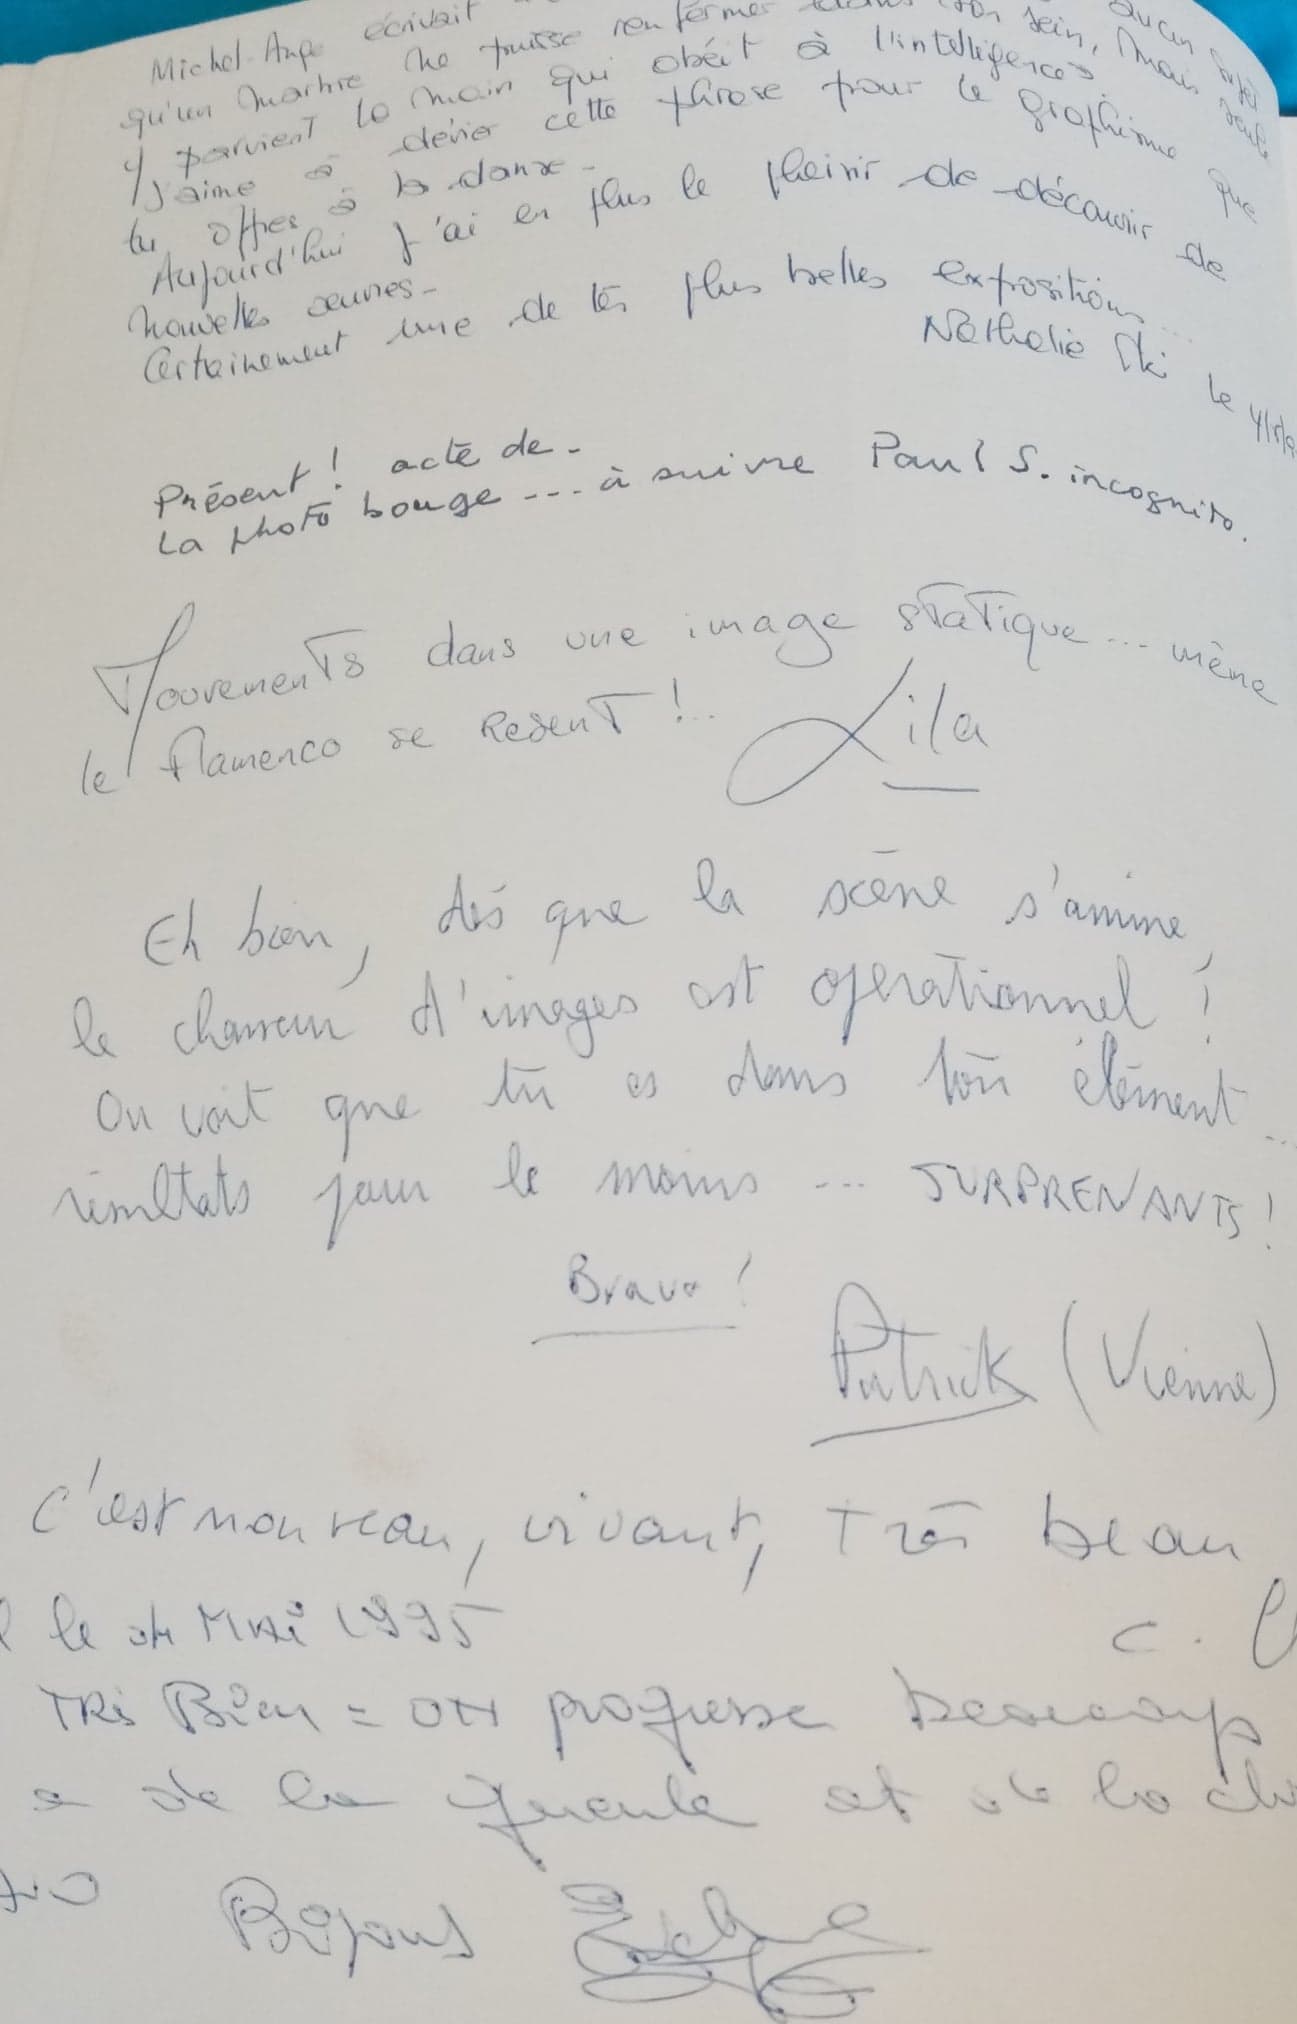 Michel-Ange écrivait aucun sujet
qu'un marbre ne puisse renfermer dans son sein, mais seule
y parvient la main qui obéit à l'intelligence.
J'aime à dévier cette phrase pour le graphisme que
tu offres à la danse -
Aujourd'hui j'ai en plus le plaisir de découvrir de
nouvelles œuvres -
Certainement une de tes plus belles expositions...
Nathalie le
Présent ! acte de -
La photo bouge --- à suivre Paul S. incognito.
Mouvements dans une image statique ... même
le flamenco se resent !..
Lila
Eh bien, dès que la scène s'anime,
le chasseur d'images est opérationnel !
On voit que tu es dans ton élément ...
résultats pour le moins ... SURPRENANTS !
Bravo !
Patrick (Vienne)
C'est nouveau, vivant, très beau
le MAi 1995
C.
TRès Bien = ON progresse beaucoup
a de la gueule et de la
Bisous